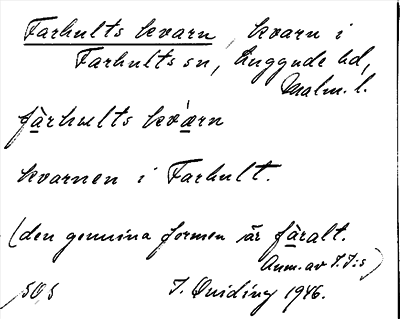 Farhults kvarn, kvarn i
Farhults sn, Luggude hd,
Malm. l.
fàrhults kvàrn
kvarnen i Farhult.
(den genuina formen är fàralt.
Anm. av I.I:s)
50, 5 I. Quiding 1946.